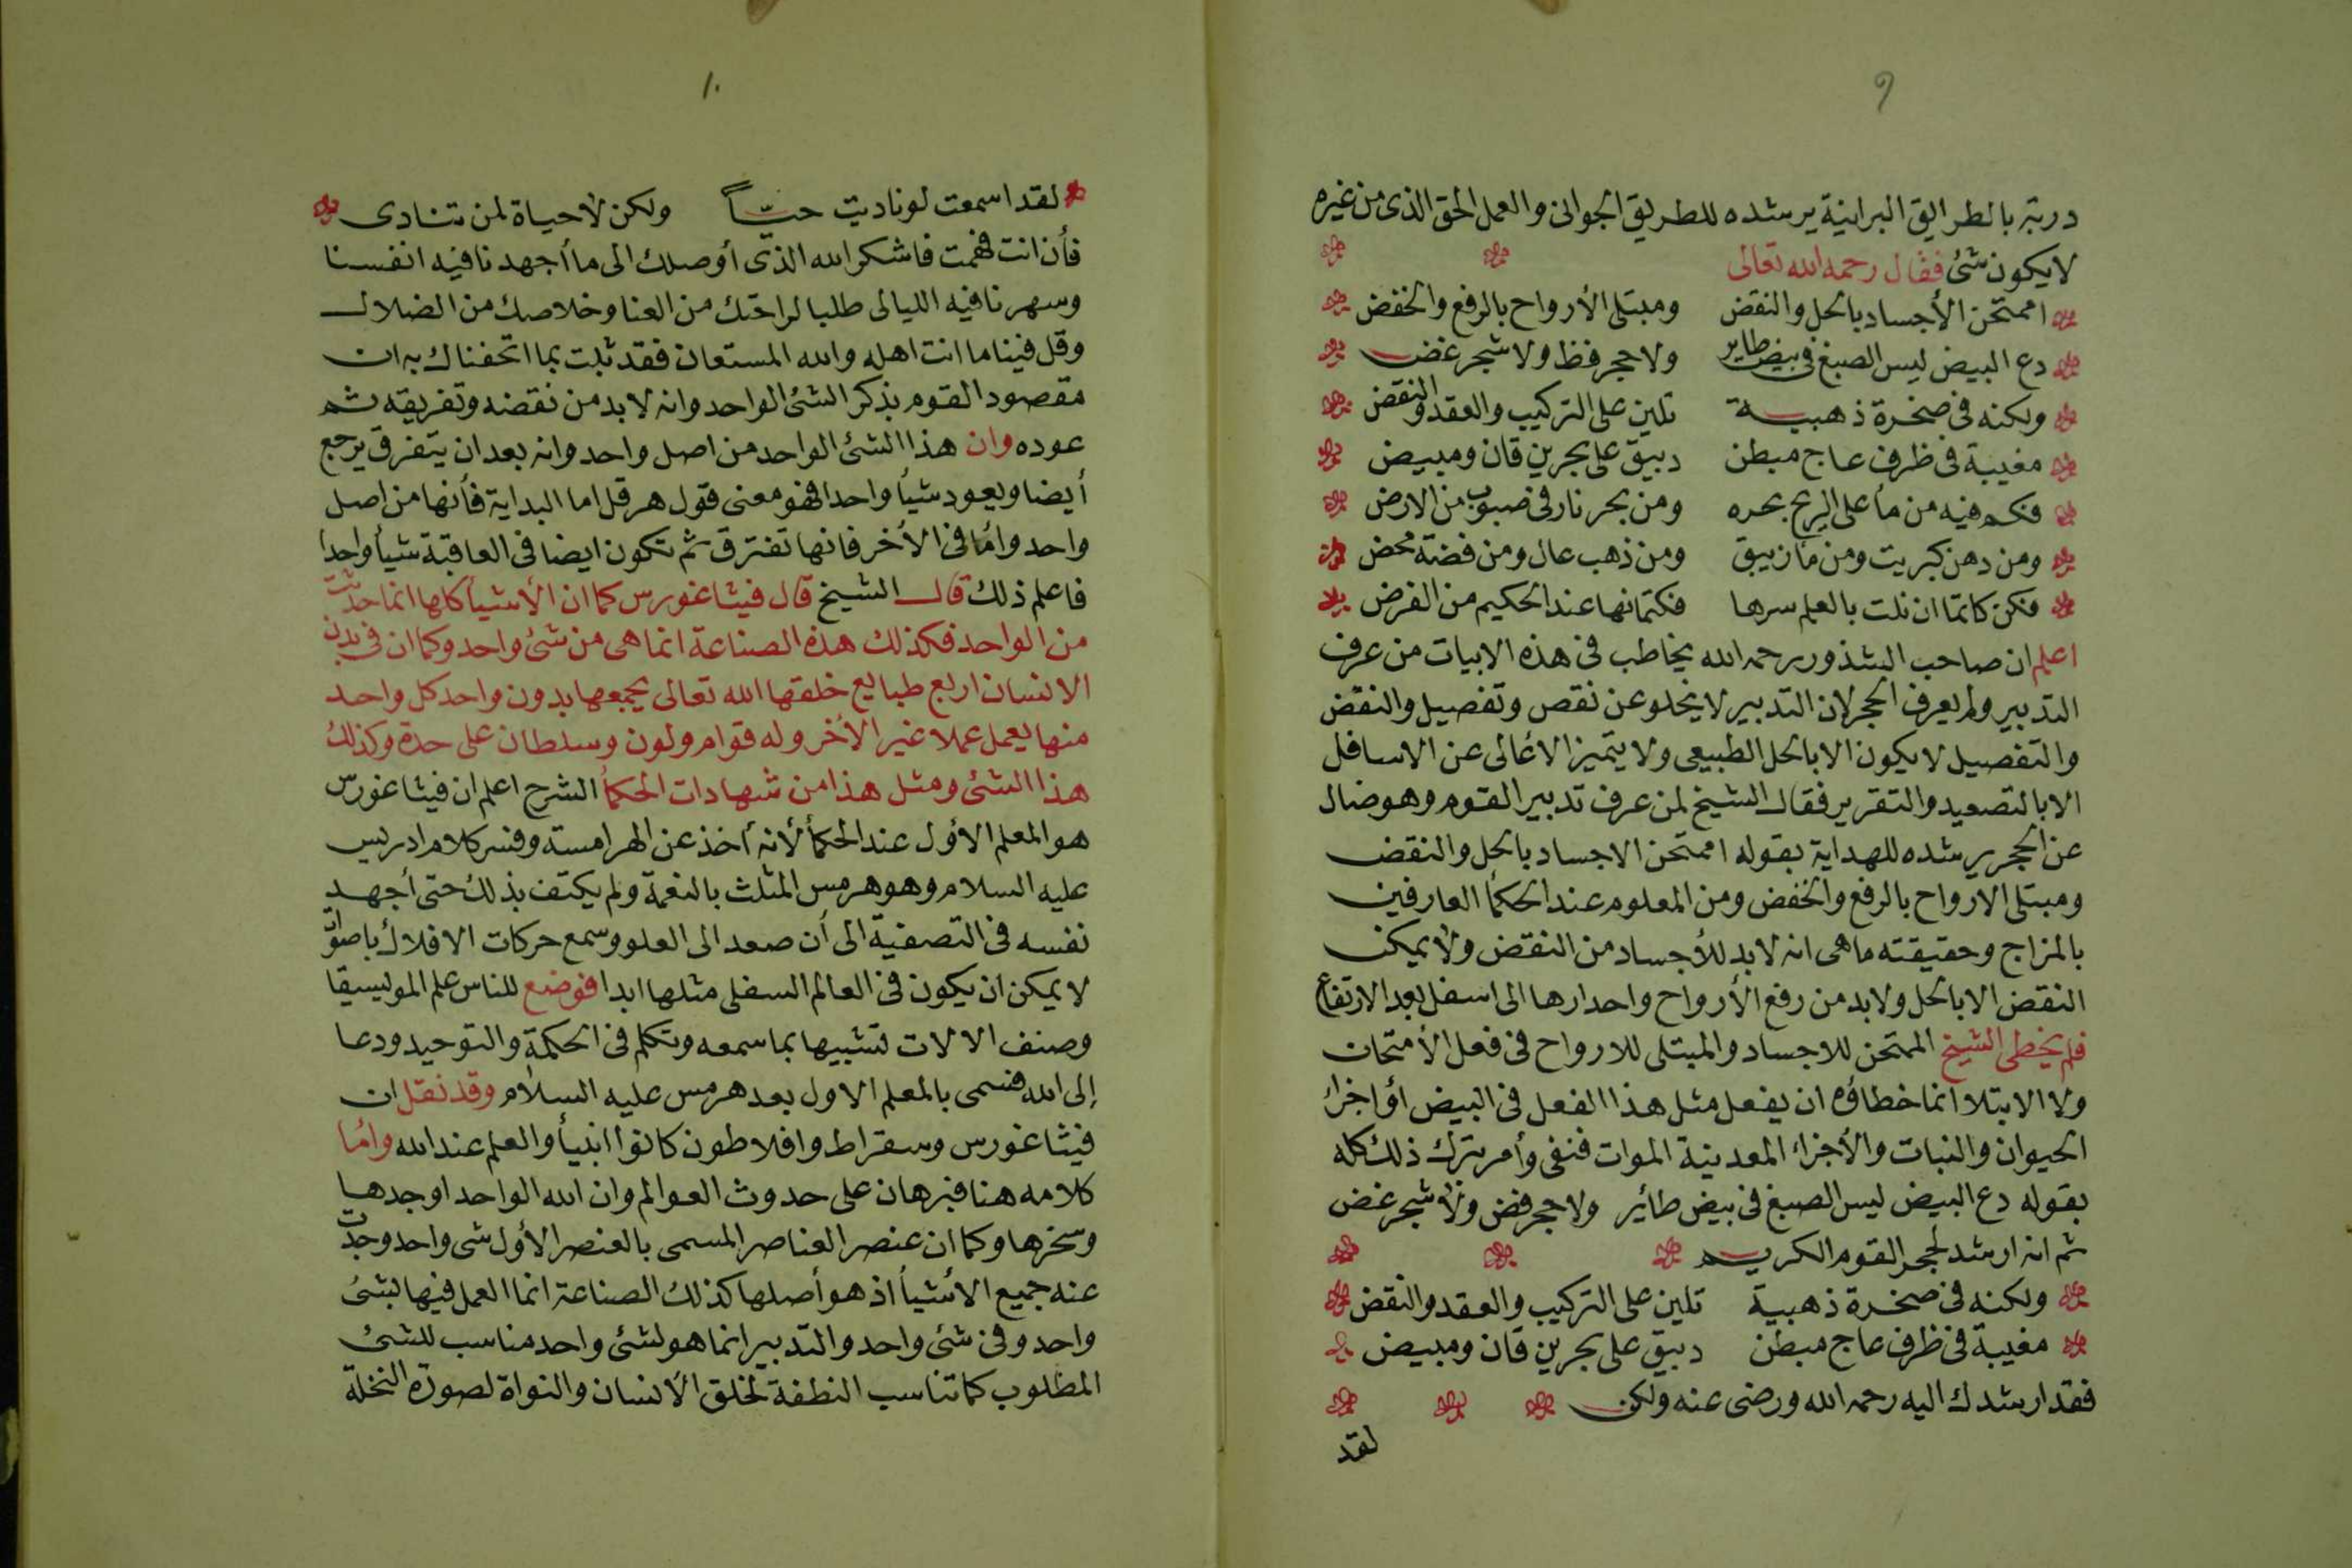 ٩
دربة بالطرايق البرانية يرشده للطريق الجوانى والعمل الحق الذى من غيره
لايكون شئ فقال رحمه الله تعالى
اممتحن الأجساد بالحل والنقض ومبتلى الأرواح بالرفع والخفض
دع البيض ليس الصبغ فى بيض طاير ولا حجر فظ ولا شجر غض
ولكنه فى صخرة ذهبية تلين على التركيب والعقد والنقض
مغيبة فى ظرف عاج مبطن دبيق على بحرين قان ومبيض
فكم فيه من مأ على الريح بحره ومن بحر نار فى صبوب من الارض
ومن دهن كبريت ومن مأ زيبق ومن ذهب عال ومن فضة محض
فكن كاتما ان نلت بالعلم سرها فكتمانها عند الحكيم من الفرض
اعلم ان صاحب الشذور رحمه الله يخاطب فى هذه الابيات من عرف
التدبير ولم يعرف الحجر لان التدبير لا يخلو عن نقص وتفصيل والنقض
والتفصيل لا يكون الا بالحل الطبيعى ولا يتميز الاعالى عن الاسافل
الا بالتصعيد والتقرير فقال الشيخ لمن عرف تدبير القوم وهو ضال
عن الحجر يرشده للهداية بقوله اممتحن الاجساد بالحل والنقض
ومبتلى الارواح بالرفع والخفض ومن المعلوم عند الحكمأ العارفين
بالمزاج وحقيقته ماهى انه لابد للأجساد من النقض ولا يمكن
النقض الا بالحل ولابد من رفع الأرواح واحدارها الى اسفل بعد الارتفاع
فلم يخطى الشيخ الممتحن للاجساد والمبتلى للارواح فى فعل الأمتحان
ولا الابتلا انما خطاؤه ان يفعل مثل هذا الفعل فى البيض أو اجزاء
الحيوان والنبات والأجزاء المعدنية الموات فنفى وأمر بترك ذلك كله
بقوله دع البيض ليس الصبغ فى بيض طائير ولا حجر فض ولا شجر غض
ثم انه ارشد لحجر القوم الكريم
ولكنه فى صخرة ذهبية تلين على التركيب والعقد والنقض
مغيبة فى ظرف عاج مبطن دبيق على بحرين قان ومبيض
فقد ارشدك اليه رحمه الله ورضى عنه ولكن
لقد
١٠
لقد اسمعت لو ناديت حيّاً ولكن لا حياة لمن تنادى
فأن انت فهمت فاشكر الله الذى أوصلك الى ما أجهدنا فيه انفسنا
وسهرنا فيه الليالى طلبا لراحتك من العنا وخلاصك من الضلال
وقل فينا ما انت اهله والله المستعان فقد ثبت بما اتحفناك به ان
مقصود القوم بذكر الشئ الواحد وانه لابد من نقضه وتفريقه ثم
عوده وان هذا الشئ الواحد من اصل واحد وانه بعد ان يتفرق يرجع
أيضا ويعود شيأ واحدا فهو معنى قول هرقل اما البداية فأنها من اصل
واحد وأما فى الأخر فانها تفترق ثم تكون ايضا فى العاقبة شيأ واحدا
فاعلم ذلك قال الشيخ قال فيثاغورس كما ان الأشيأ كلها انما حدثت
من الواحد فكذلك هذه الصناعة انما هى من شئ واحد وكما ان فى بدن
الانسان اربع طبايع خلقها الله تعالى يجمعها بدون واحد كل واحد
منها يعمل عملا غير الأخر وله قوام ولون وسلطان على حدة وكذلك
هذا الشئ ومثل هذا من شهادات الحكمأ الشرح اعلم ان فيثاغورس
هو المعلم الأول عند الحكمأ لأنه أخذ عن الهرامسة وفسر كلام ادريس
عليه السلام وهو هرمس المثلث بالنعمة ولم يكتف بذلك حتى أجهد
نفسه فى التصفية الى أن صعد الى العلو وسمع حركات الافلاك باصوات
لا يمكن ان يكون فى العالم السفلى مثلها ابدا فوضع للناس علم الموليسيقا
وصنف الالات تشبيها بما سمعه وتكلم فى الحكمة والتوحيد ودعا
إلى الله فسمى بالمعلم الاول بعد هرمس عليه السلام وقد نقل ان
فيثاغورس وسقراط وافلاطون كانوا انبيأ والعلم عند الله وأما
كلامه هنا فبرهان على حدوث العوالم وان الله الواحد اوجدها
وسخرها وكما ان عنصر العناصر المسمى بالعنصر الأول شى واحد وجدت
عنه جميع الأشيأ اذ هو أصلها كذلك الصناعة انما العمل فيها بشئ
واحد وفى شئ واحد والتدبير انما هو لشئ واحد مناسب للشئ
المطلوب كما تناسب النطفة لخلق الأنسان والنواة لصورة النخلة